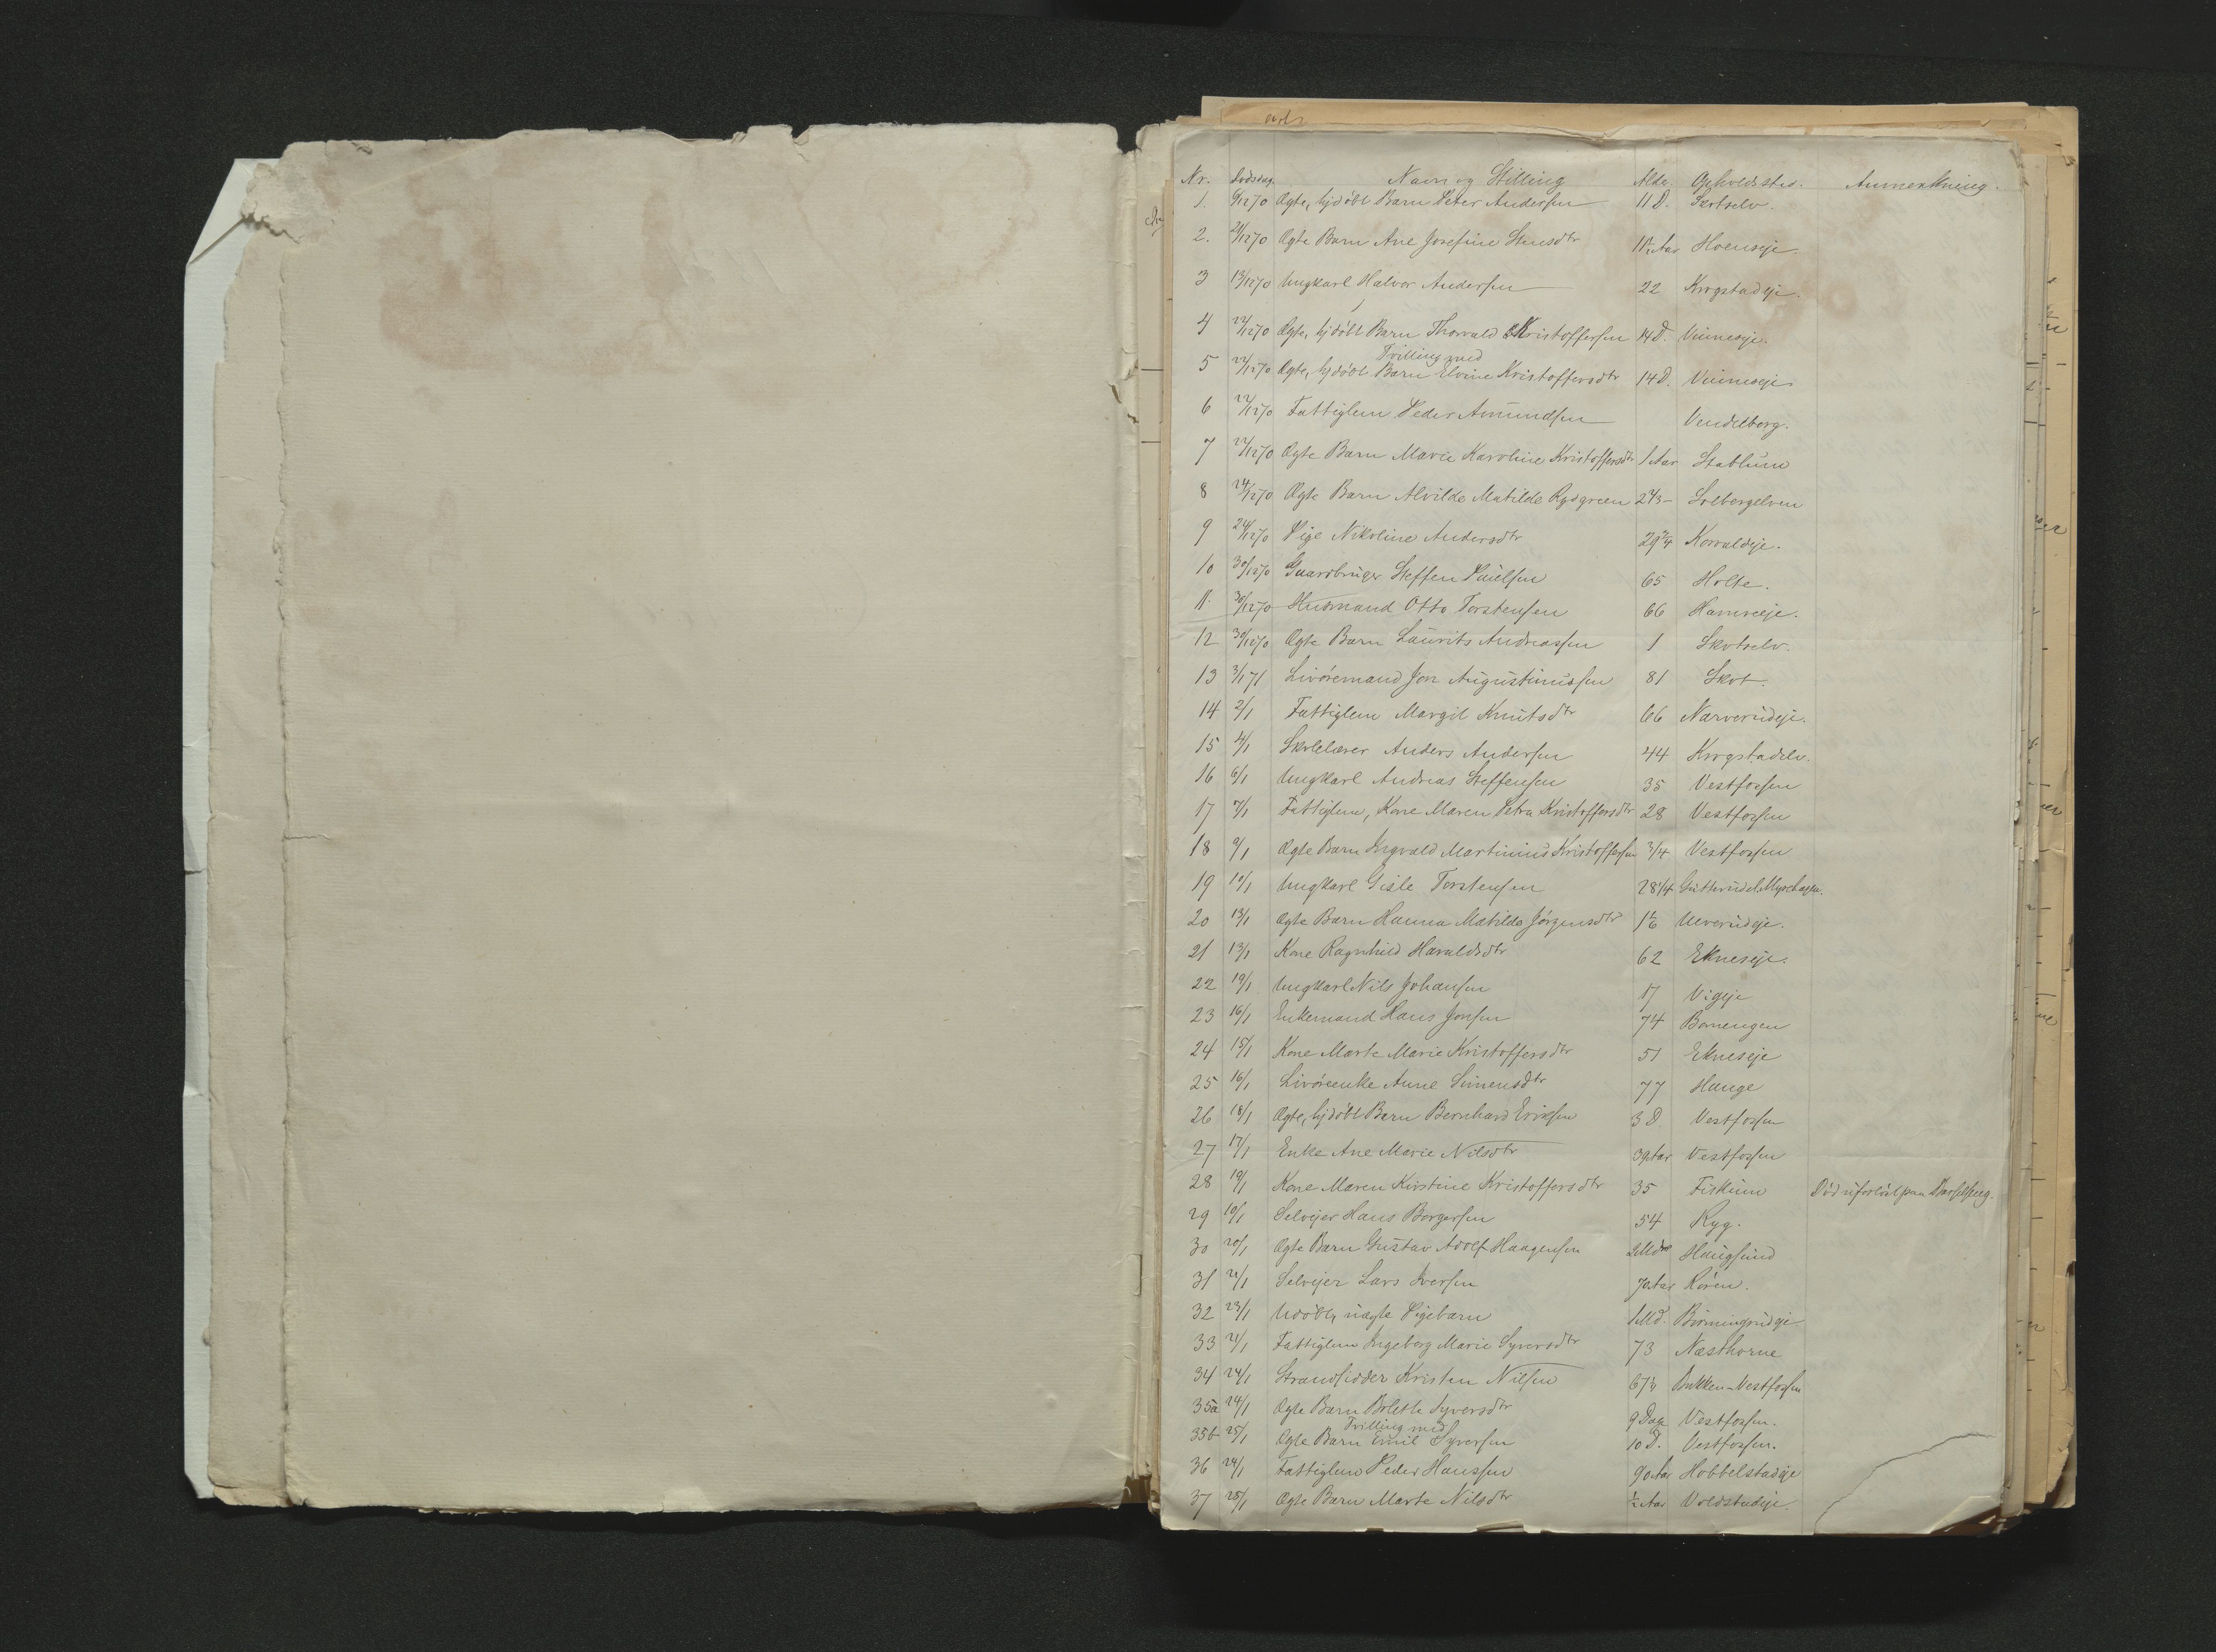 Nr. Dødsdag. Navn og Stilling Alder. Opholdssted. Anmerkning.
1. 6/12 70 Ægte, hjdøbt Barn Peter Andersen 11 D. Skotselv.
2. 21/12 70 Ægte Barn Ane Josefine Stensdtr Hoenseje.
3 13/12 70 Ungkarl Halvor Andersen 22 Krogstadeje.
4 22/12 70 Ægte, hjdøbt Barn Thorvald Kristoffersen 14 D. Vinneseje.
Tvilling med
5 22/12 70 Ægte, hjdøbt Barn Elvine Kristoffersdtr 14 D. Vinneseje
6 22/12 70 Fattiglem Peder Amundsen Vendelborg.
7 22/12 70 Ægte Barn Marie Karoline Kristoffersdtr 1 Aar Stablum
8 24/12 70 Ægte Barn Alvilde Matilde Rydgreen Solbergelven
9 24/12 70 Pige Nikoline Andersdtr 29 3/4 Korvaldeje.
10 30/12 70 Gaardbruger Steffen Paulsen 65 Holte.
11. 30/12 70 Husmand Otto Torstensen 66 Hamreeje.
12 30/12 70 Ægte Barn Laurits Andreassen 1 Skotselv.
13 3/1 71 Livøremand Jon Augustinussen 81 Skot.
14 2/1 Fattiglem Margit Knutsdtr 66 Narverudeje.
15 4/1 Skolelærer Anders Andersen 44 Krogstadelv.
16 6/1 Ungkarl Andreas Steffensen 35 Vestfossen
17 7/1 Fattiglem, Kone Maren Petra Kristoffersdtr 28 Vestfossen
18 9/1 Ægte Barn Ingvald Martinius Kristoffersen 3/4 Vestfossen
19 10/1 Ungkarl Gisle Torstensen 28 1/4
20 13/1 Ægte Barn Hanna Matilde Jörgensdtr Ulverudeje.
21 13/1 Kone Ragnhild Haraldsdtr 62 Ekneseje.
22 19/1 Ungkarl Nils Johansen 17 Vigeje
23 16/1 Enkemand Hans Jonsen 74 Bomengen
24 15/1 Kone Marte Marie Kristoffersdtr 51 Ekneseje
25 16/1 Livøreenke Anne Simensdtr 77 Hauge
26 18/1 Ægte, hjdøbt Barn Bernhard Eriksen 3 D. Vestfossen
27 17/1 Enke Ane Marie Nilsdtr 39 Aar Vestfossen
28 19/1 Kone Maren Kirstine Kristoffersdtr 35 Fiskum Död uforlöst paa Barselseng.
29 10/1 Selveier Hans Borgersen 54 Ryg.
30 20/1 Ægte Barn Gustav Adolf Haagensen 2 Mdr Haugsund
31 21/1 Selveier Lars Iversen 70 Aar Røren.
32 23/1 Udöbt, uægte Pigebarn 1 Md.
33 21/1 Fattiglem Ingeborg Marie Syversdtr 73 Næsthorne
34 24/1 Strandsidder Kristen Nilsen Bakken-Vestfossen
35a 24/1 Ægte Barn Bolette Syversdtr 9 Dage Vestfossen.
Tvilling med
35b 25/1 Ægte Barn Emil Syversen 10 D. Vestfossen.
36 24/1 Fattiglem Peder Hanssen 90 Aar Hobbelstadeje
37 28/1 Ægte Barn Marte Nilsdtr 1/2 Aar Voldstadeje.